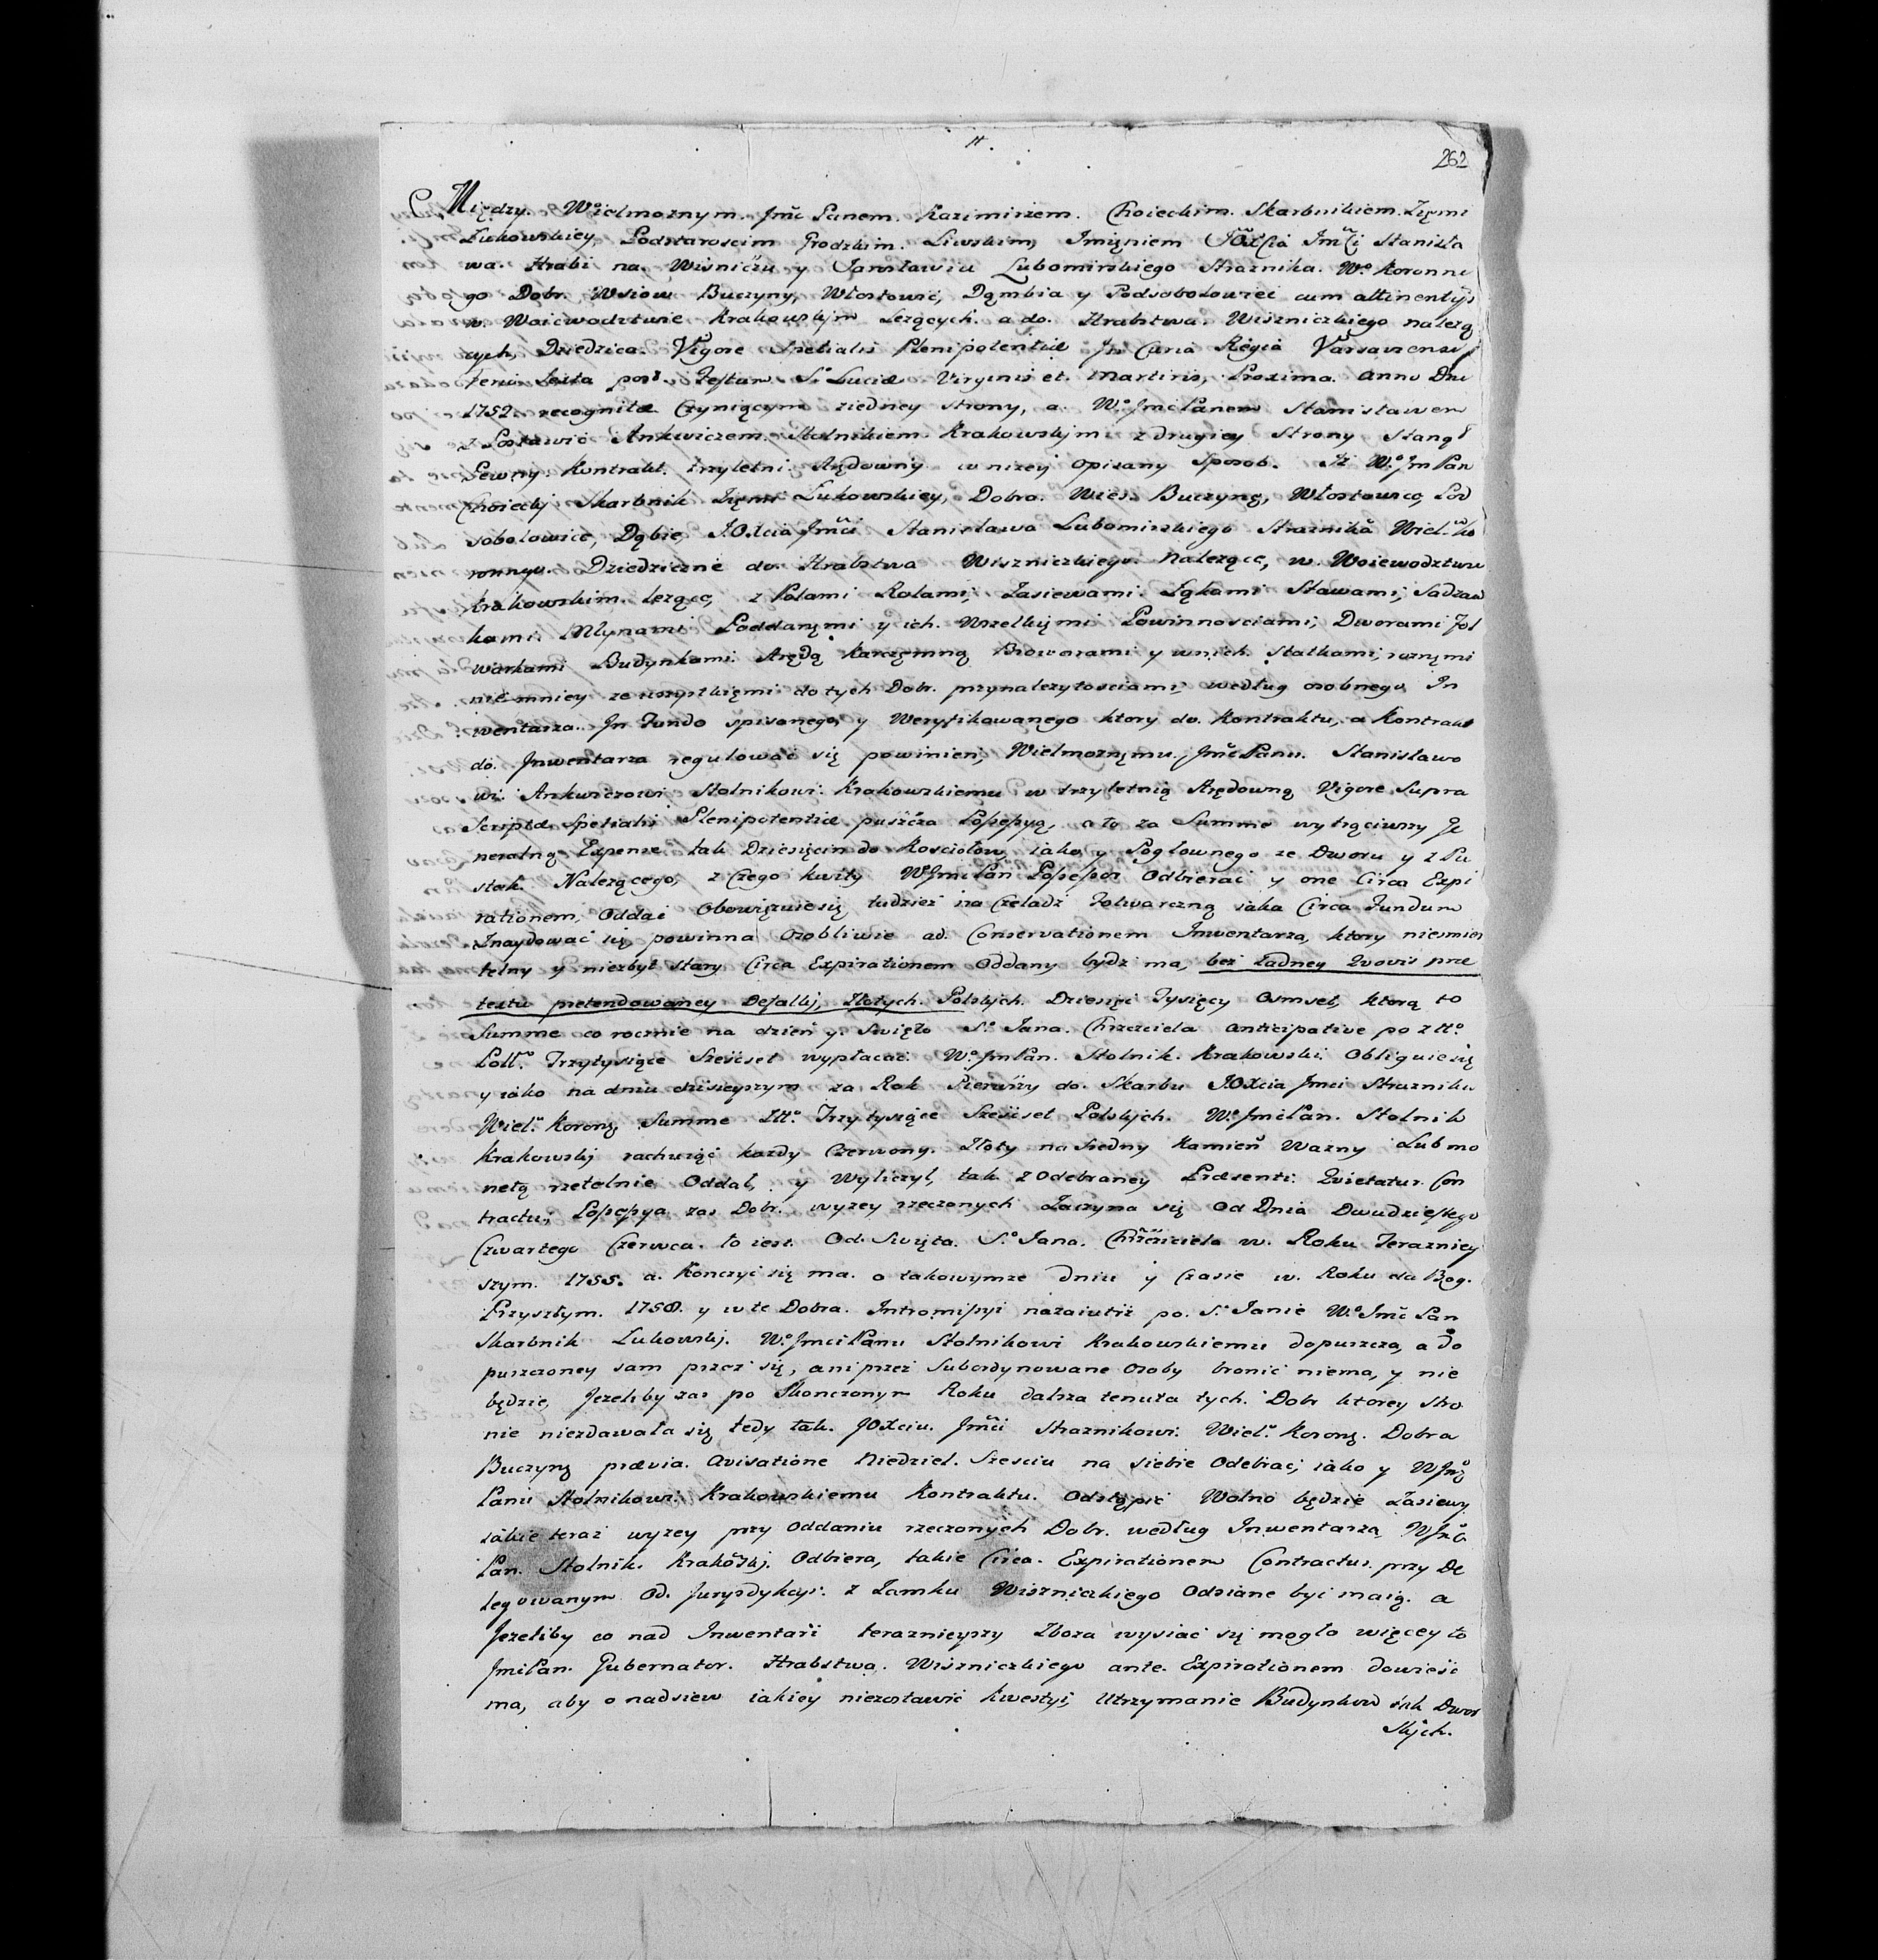 262
Między. Wielmoznym. Jmć Panem. Kazimirzem. Choieckim. Skarbnikiem. Zięmi
Łukowskiey, Podstaroscim Grodzkim. Liwskim, Imięniem JOXcia Jmći Stanisła
wa. Hrabi na. Wisniczu y Jarosławiu Lubomirskiego Straznika. Wo. Koronne
go Dobr. Wsiow Buczyny, Włostowic, Dąmbia y Podsobolowiec cum attinentijs
w. Woiewodztwie Krakowskjm Lezących. a do. Hrabstwa. Wiszniczkiego nalezą
cych, Dziedzica. Vigore Spetialis Plenipotentiæ In Curia Regia Varsaviensi
feria Sexta post. Festum S. Luciæ Virginis et. Martiris, Proxima. Anno Dni
1752. recognitæ Czyniącym ziedney strony, a. Wo. Jmci Panem Stanisławem
z Posławic Ankwiczem. Stolnikiem. Krakowskjm. z drugiey Strony Stanął
Pewny Kontrakt. trzyletni. Arędowny w nizey Opisany Sposob. Iz Wo. Jm Pan
Choieckj Skarbnik Zięmi Łukowskiey, Dobra. Wies. Buczynę, Włostowice, Pod
sobolowice, Dąbie, JOXcia Jmći Stanisława Lubomirskiego Straznika Wiel. Ko
ronnego. Dziedziczne do. Hrabstwa Wiszniczkiego. Nalezące, w. Woiewodztwie
Krakowskim. lezące, z Polami Rolami, Zasiewami. Łąkami Stawami, Sadzaw
kami. Młynami Poddanymi y ich. Wszelkiemi Powinnosciami, Dworami Fol
warkami Budynkami. Arędą Karczęmną Browarami y wnich. Statkami, roznymi
niemniey ze wszystkięmi do tych Dobr. przynalezytosciami, według osobnego In
wentarza. In Fundo spisanego, y Weryfikowanego ktory do. Kontraktu, a Kontrakt
do. Inwentarza regulować się powinien, Wielmoznymu. Jmć Panu. Stanisławo
wi. Ankwiczowi Stolnikowi. Krakowskiemu w trzyletnią Arędowną Vigore Supra
Scriptæ Spetialis Plenipotentiæ puszcza Possessyą, a to za Summe wytrąciwszy Ge
neralną Expense tak Dziesięcin do Kosciołow, iako y Pogłownego ze Dworu y z Pu
stek. Nalezącego, z Czego kwity WJmć Pan Possessor Odbierać y one Circa Expi
rationem, Oddać Obowięzuie się tudziez na Czeladz Folwarczną iaka Circa Fundum
Znaydować się powinna Osobliwie ad. Conservationem Inwentarza, ktory niesmier
telny y niezbyt stary Circa Expirationem Oddany bydz ma, bez Zadney Quovis præ
textu pretendowaney Defalkj, Złotych. Polskjch. Dziesięć Tysięcy Osmset, ktorą to
Summe co rocznie na dzień y. Swięto S. Jana. Chrzciciela anticipative po złł.
Poll. Trzytysiące Szescset wypłacać. Wo. Jm Pan. Stolnik. Krakowski. Obliguie się
y iako na dniu dzisieyszym za Rok Pierwszy do. Skarbu JOXcia Jmci Straznika
Wiel. Koronę. Summe Złł. Trzytysiące Szescset Polskjch. Wo. Jmci Pan. Stolnik
Krakowskj rachuiąc kazdy Czerwony. Złoty na Siedny Kamień Wazny Lub mo
netą rzetelnie Oddał, y Wyliczył, tak z Odebraney Præsenti. Quietatur. Con
tractu, Possessya zas Dobr. wyzey rzeczonych Zaczyna się Od Dnia Dwudziestego
Czwartego Czerwca. to iest. Od. Swięta. S. Jana. Chrzciciela w. Roku Terazniey
szym. 1755. a. Konczyć się ma. o takowymze dniu y Czasie w. Roku da Bog.
Przyszłym. 1758. y w te Dobra. Intromissyi nazaiutrz po. S. Janie Wo. Jmć Pan
Skarbnik Łukowskj. Wo. Jmci Panu Stolnikowi Krakowskiemu dopuszcza, a do
puszczoney sam przez się, ani przez Subordynowane Osoby bronic niema, y nie
będzie, Jezeliby zas po Skonczonym Roku dalsza tenuta tych. Dobr ktorey stro
nie niezdawała się tedy tak. JOXciu. Jmći Straznikowi. Wiel. Koronę. Dobra
Buczynę prævia. Avisatione Niedziel. Szesciu na siebie Odebrac, iako y WJmć
Panu Stolnikowi. Krakowskiemu Kontraktu. Odstąpić Wolno będzie Zasiewy
iakie teraz wyzey przy Oddaniu rzeczonych Dobr. według Inwentarza, WJmć
Pan. Stolnik. Krakowskj. Odbiera, takie Circa. Expirationem Contractus. przy De
legowanym Od. Jurysdykcyi. z Zamku Wiszniczkiego Odsiane być maią. a
Jezeliby co nad Inwentarz terazniejszy Zboza wysiać się mogło więcey to
Jmć Pan. Gubernator. Hrabstwa. Wiszniczkiego ante. Expirationem dowieść
ma, aby o nadsiew iakiey niezostawić kwestyi, Utrzymanie Budynkow tak Dwor
skjch.